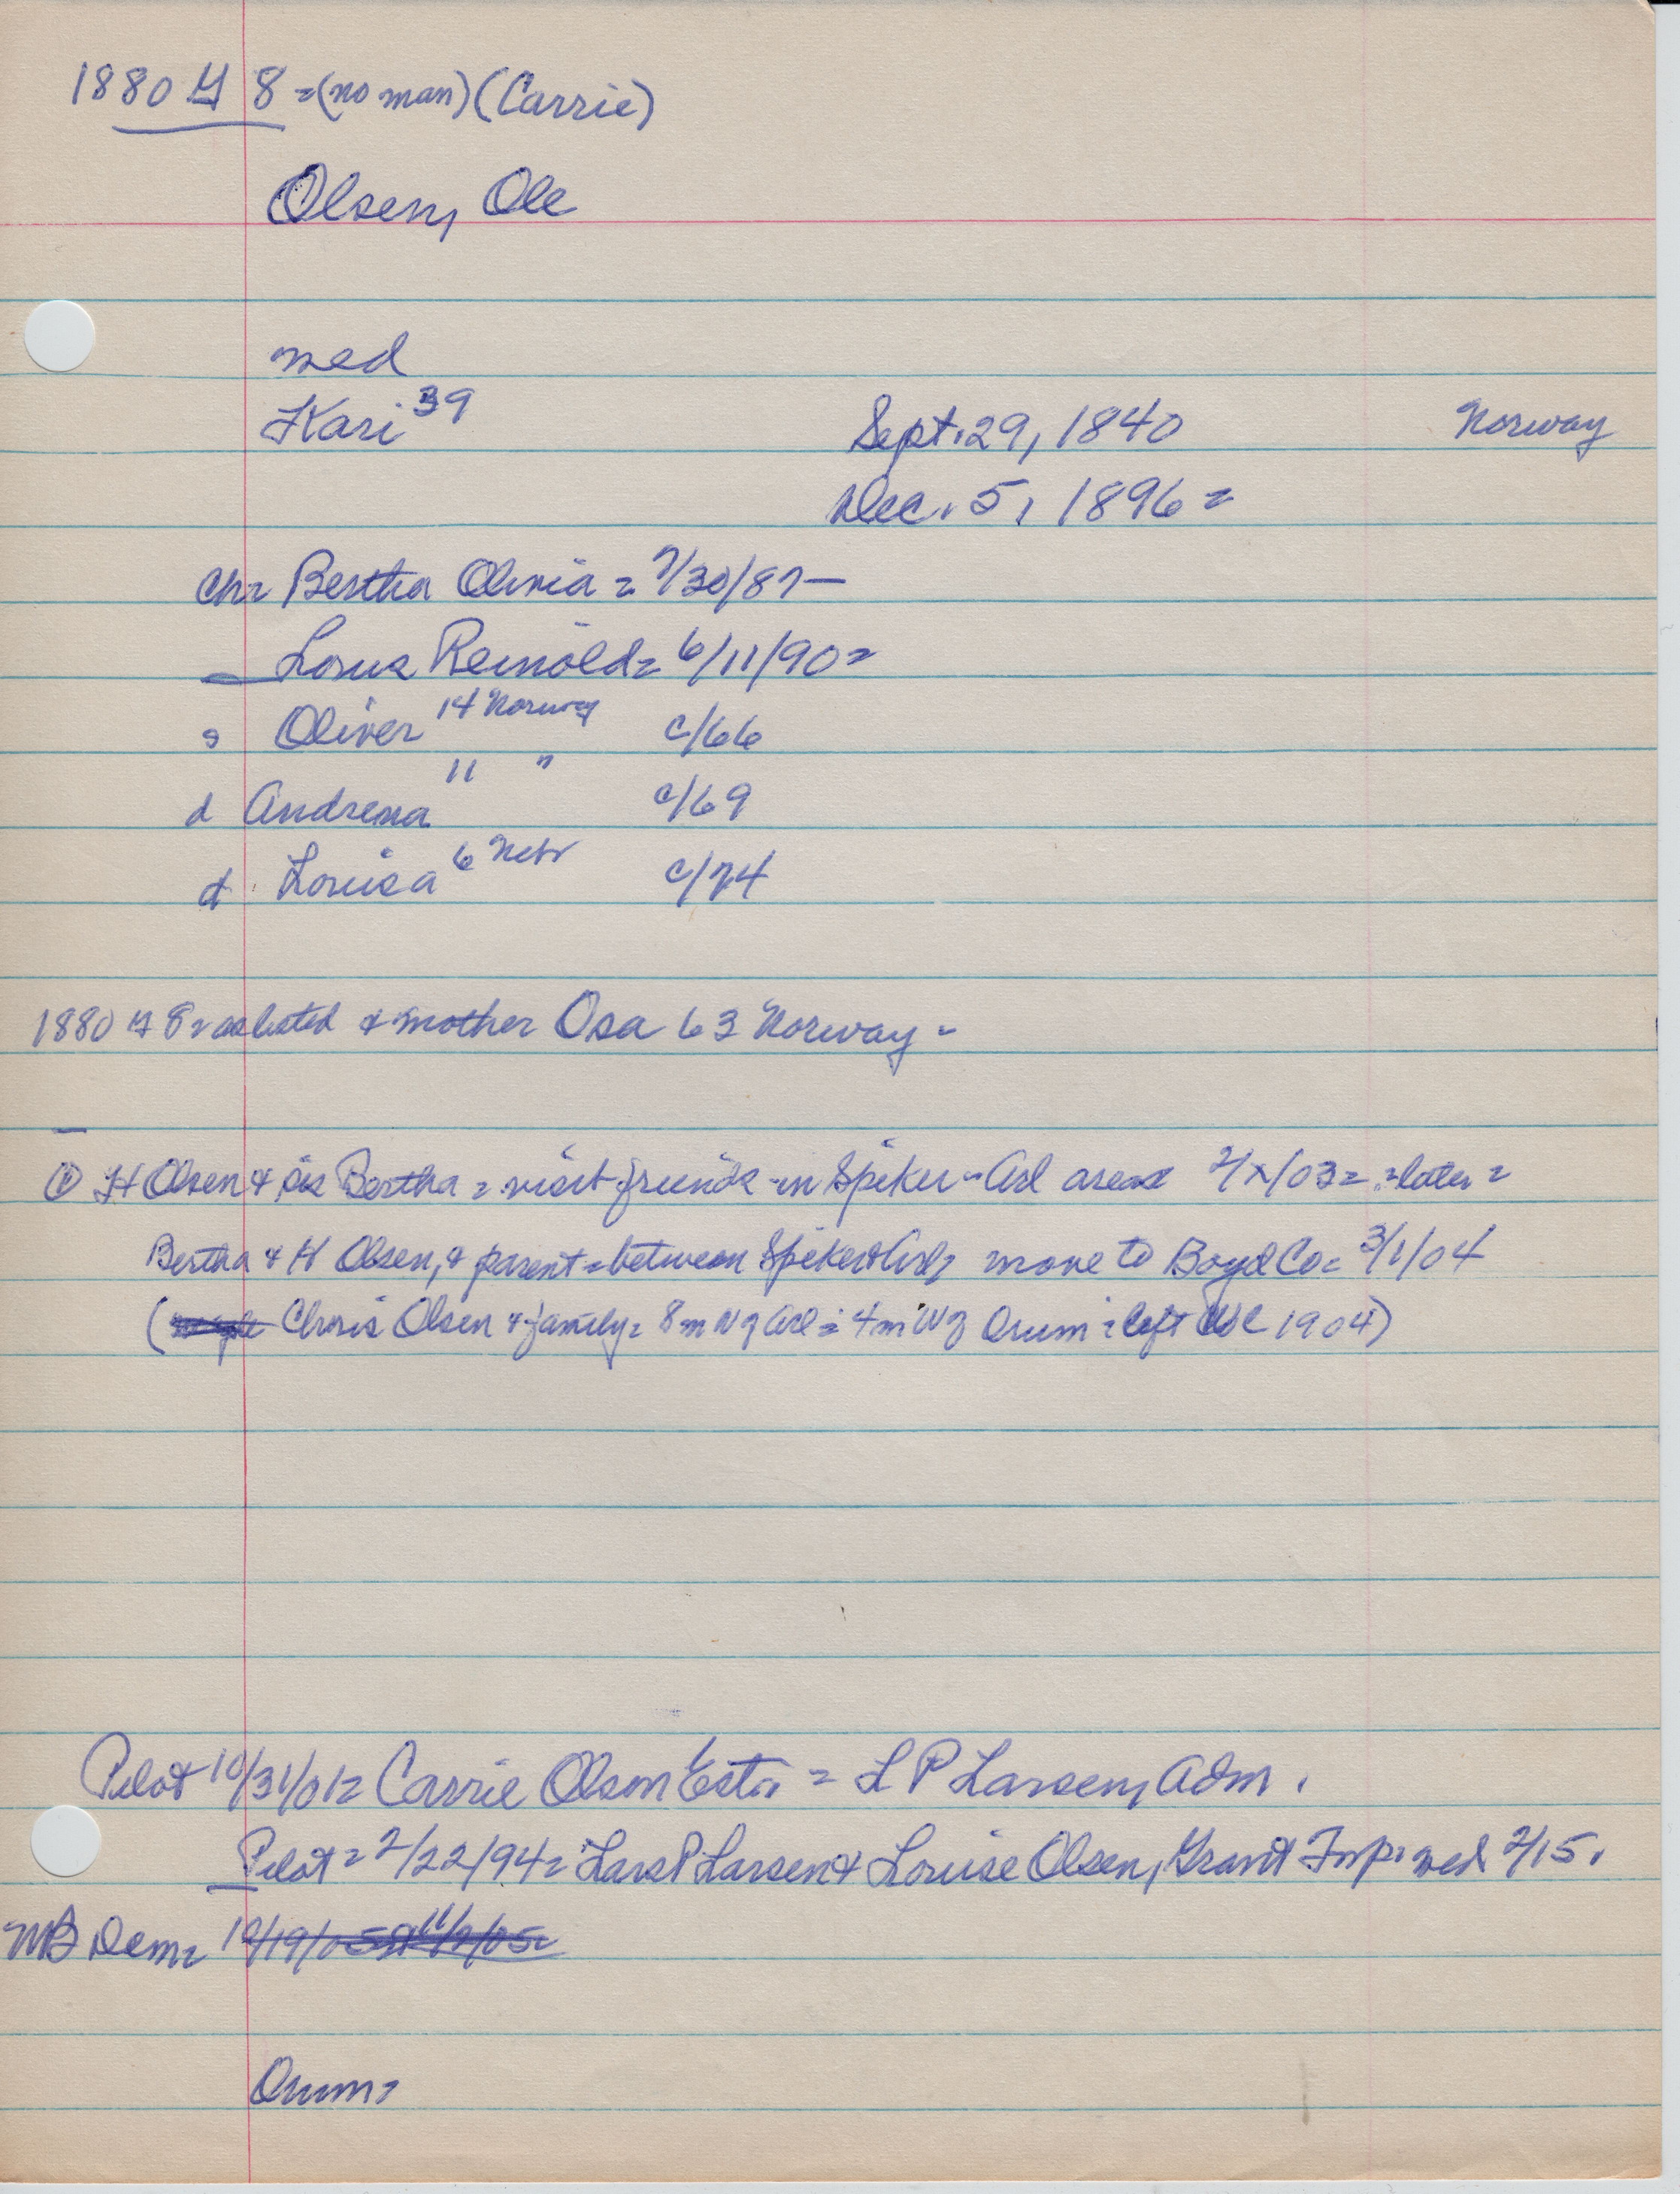 1880 8 = (no man) (Carrie)
Olsen, Ole
med
Kari 39 Sept. 29, 1840 Norway
Dec. 5, 1896 =
Ch = Bertha Olivia = 7/30/87 —
Louis Reinold = 6/11/90 =
s Oliver 14 Norway c/66
d Andrena 11 " c/69
d Louisa 6 Nebr c/74
1880 8 = as listed & mother Osa 63 Norway =
H Olsen & sis Bertha = visit friends in Spiker - Arl area 2/x/03 = = later =
Bertha & H Olsen, & parent = between Spiker & Arl, move to Boyd Co = 3/1/04
( Chris Olsen & family = 8 m N of Arl = 4 mi W of Orum = left 1904)
Pilot 10/31/01 = Carrie Olson Est. = L P Larsen, Adm.
Pilot = 2/22/94 = Lars P Larsen & Louise Olsen, Grant Twp. med 2/15.
Dem = 10/19/05
Orum =